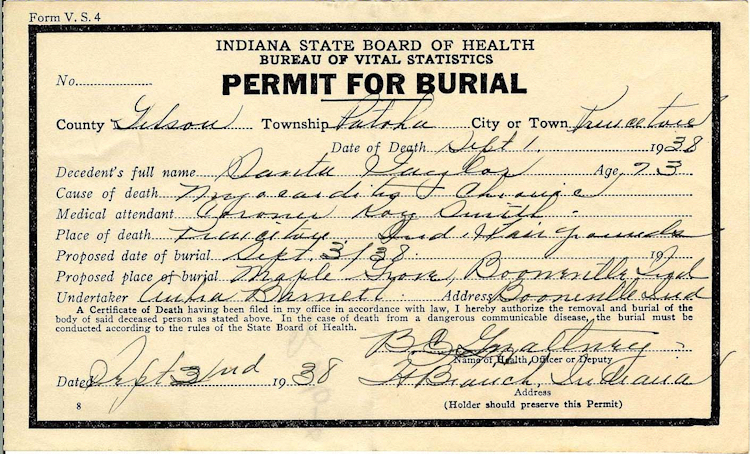 Form V. S. 4
INDIANA STATE BOARD OF HEALTH
BUREAU OF VITAL STATISTICS
No.
PERMIT FOR BURIAL
County Gibson Township Patoka City or Town Princeton
Date of Death Sept 1 1938
Decedent's full name Taylor Age 73
Cause of death Myocarditis Chronic
Medical attendant Coroner Roy Smith
Place of death Princeton Ind Fair grounds
Proposed date of burial Sept. 3/38 19
Proposed place of burial Maple Grove, Booneville Ind
Undertaker Barnett Address Booneville Ind
A Certificate of Death having been filed in my office in accordance with law, I hereby authorize the removal and burial of the
body of said deceased person as stated above. In the case of death from a dangerous communicable disease, the burial must be
conducted according to the rules of the State Board of Health.
B.C.
Name of Health Officer or Deputy
Dated Sept 2nd 1938 Ft Branch, Indiana
Address
8 (Holder should preserve this Permit)